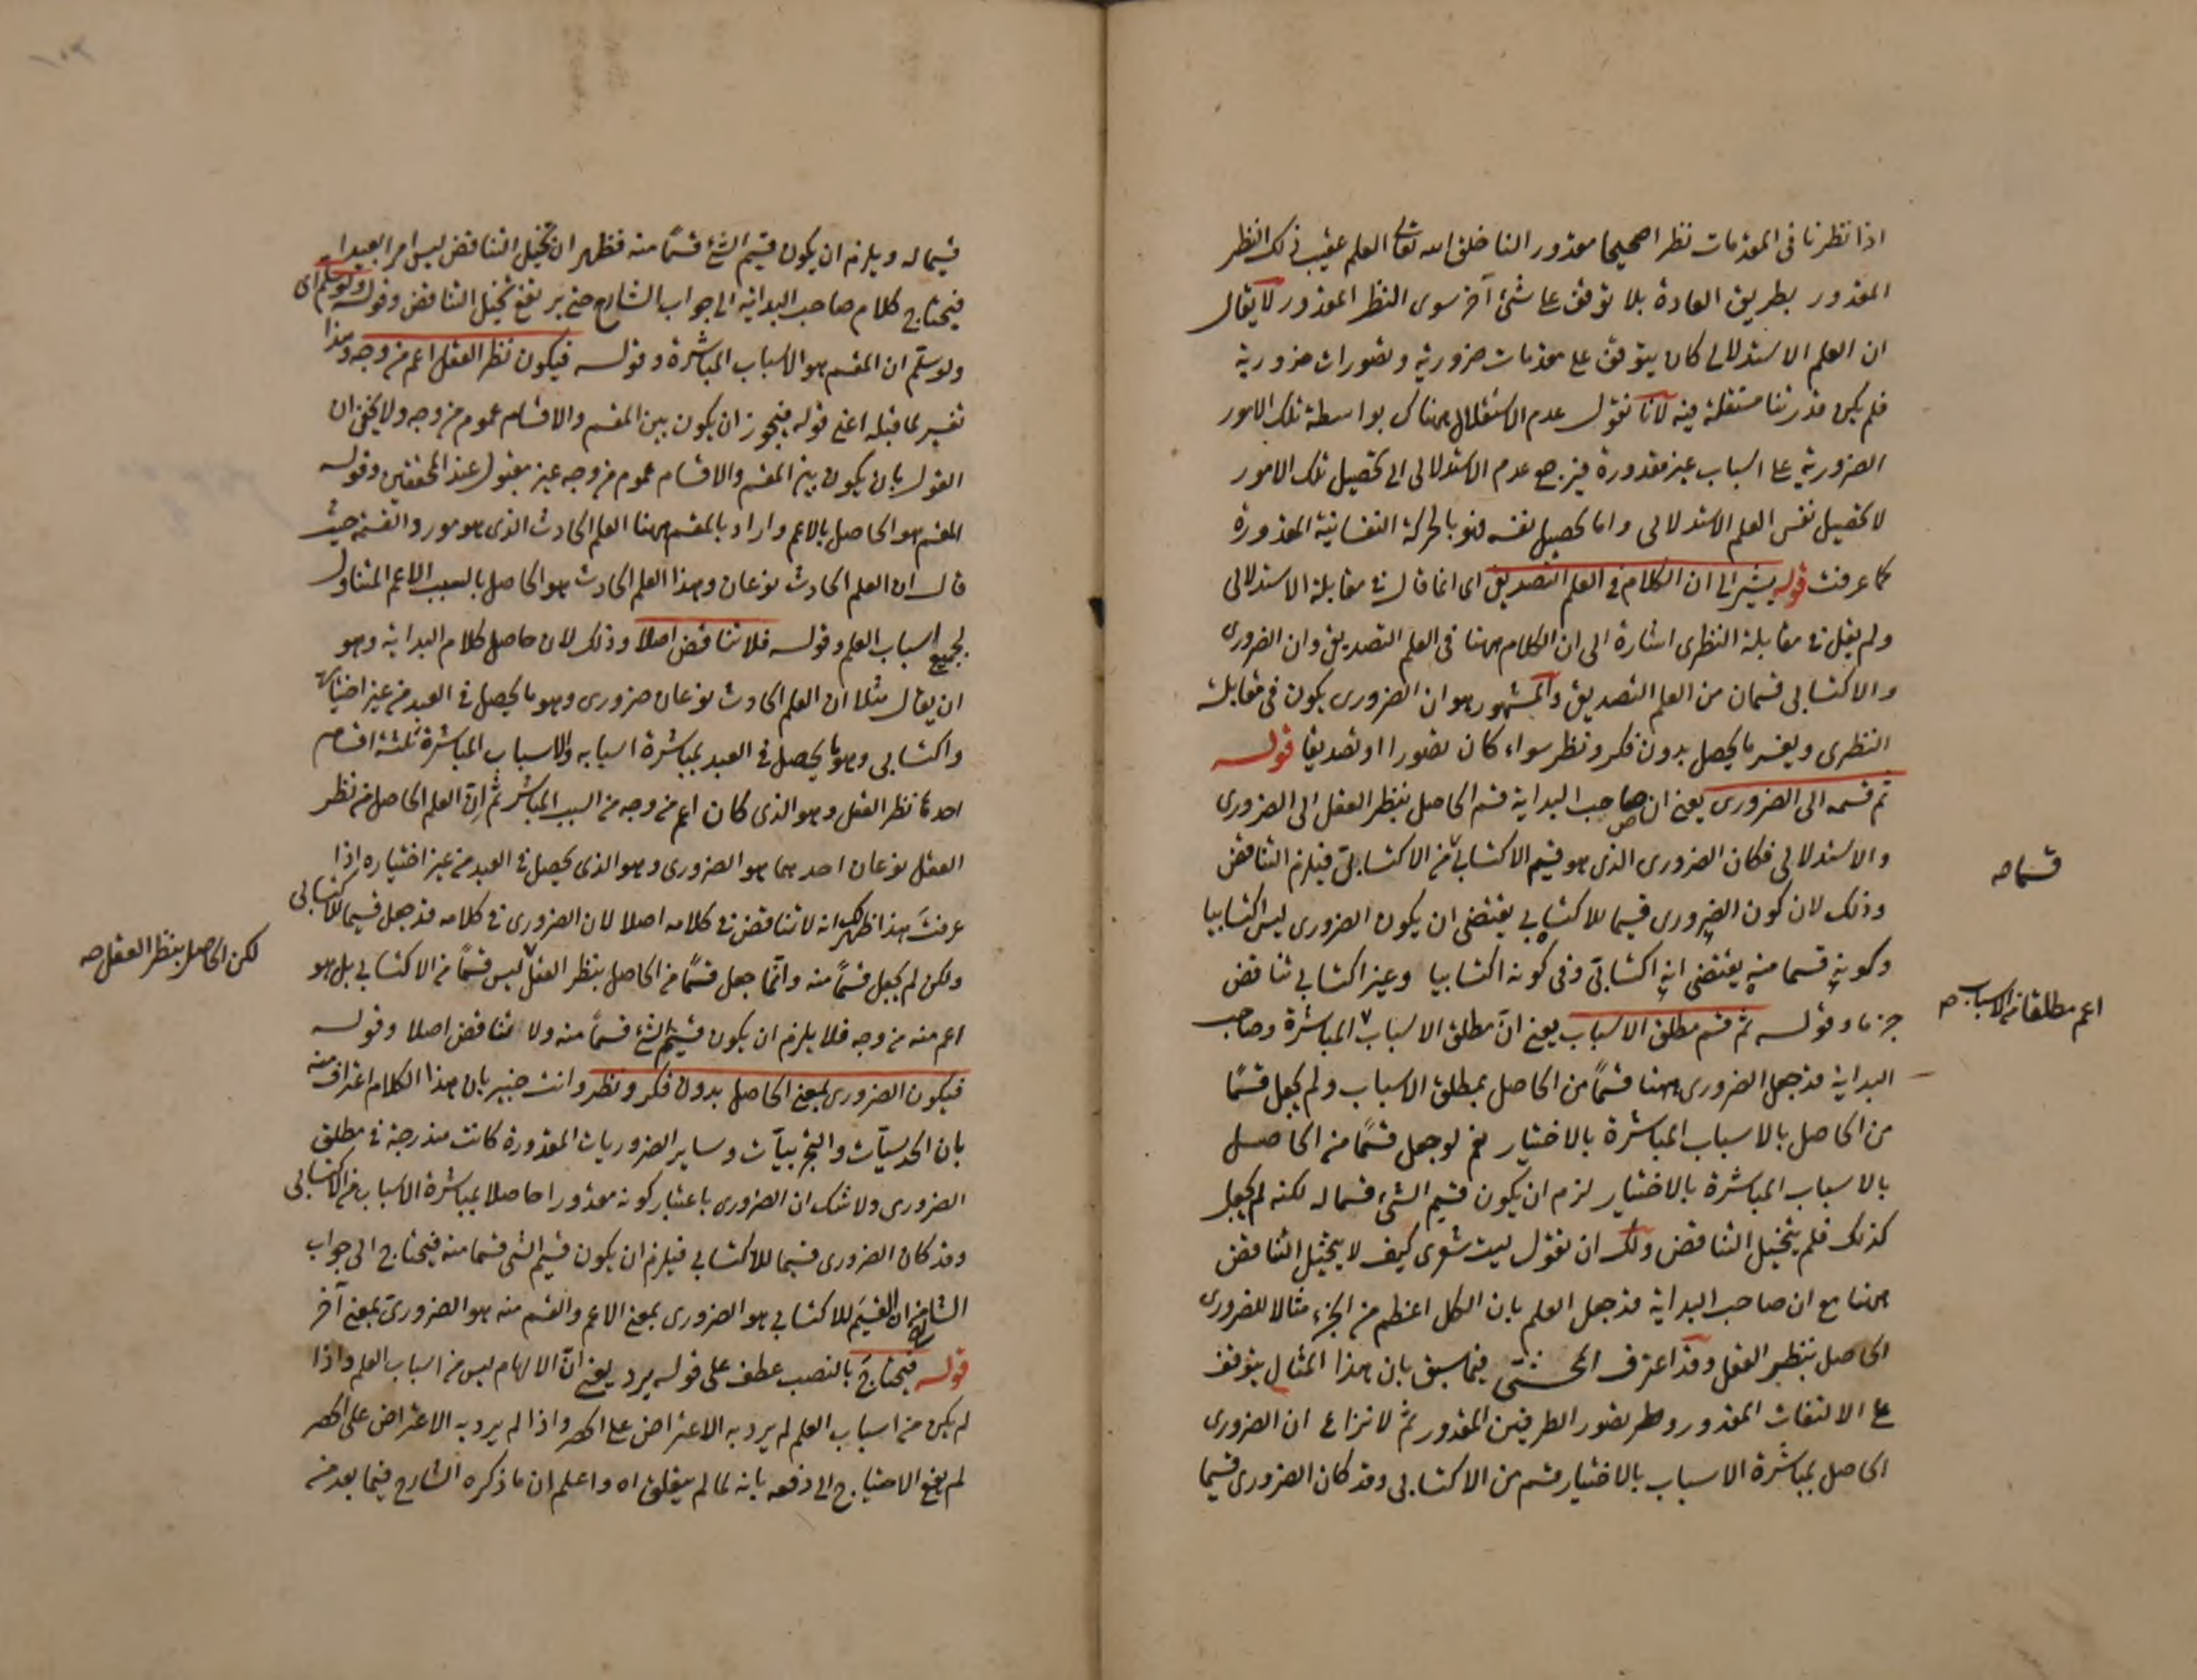 اذا نظرنا فى المقدمات نظرا صحيحا مقدور النا خلق الله تعالى العلم عقيب ذلك النظر
المقدور بطريق العادة بلا توقف على شئ آخر سوى النظر المقدور لا يقال
ان العلم الاستدلالى كان يتوقف على مقدمات ضرورية وتصورات ضرورية
فلم يكن قدرتنا مستقلة فيه لانا نقول عدم الاستقلال هناك بواسطة تلك الامور
الضرورية على اسباب غير مقدورة فيرجع عدم الاستدلالى الى تحصيل تلك الامور
لا تحصيل نفس العلم الاستدلالى واما تحصيل نفسه فهو بالحركة النفسانية المقدورة
كما عرفت قوله يشير الى ان الكلام فى العلم التصديق اى انما قال فى مقابلة الاستدلالى
ولم يقل فى مقابلة النظرى اشارة الى ان الكلام ههنا فى العلم التصديق وان الضرورى
والاكتسابى قسمان من العلم التصديق والمشهور هو ان الضرورى يكون فى مقابلة
النظرى ويفسر ما يحصل بدون فكر ونظر سواء كان تصورا او تصديقا قوله
ثم قسمه الى الضرورى يعنى ان صاحب البداية قسم الحاصل بنظر العقل الى الضرورى
والاستدلالى فكان الضرورى الذى هو قسيم الاكتسابى من الاكتسابى فيلزم التناقض
وذلك لان كون الضرورى قسيما للاكتسابى يقتضى ان يكون الضرورى ليس اكتسابيا
وكونه قسما منه يقتضى انه اكتسابى وفى كونه اكتسابيا وغير اكتسابى تناقض
جزما وقوله ثم قسم مطلق الاسباب يعنى ان مطلق الاسباب المباشرة وصاحب
البداية قد جعل الضرورى ههنا قسما من الحاصل بمطلق الاسباب ولم يجعل قسما
من الحاصل بالاسباب المباشرة بالاختيار نعم لو جعل قسما من الحاصل
بالاسباب المباشرة بالاختيار لزم ان يكون قسيم الشئ قسما له لكنه لم يجعل
كذلك فلم يتخيل التناقض ولك ان تقول ليت شعرى كيف لا يتخيل التناقض
ههنا مع ان صاحب البداية قد جعل العلم بان الكل اعظم من الجزء مثالا للضرورى
الحاصل بنظر العقل وقد اعترف المحشى فيما سبق بان هذا المثال يتوقف
على الالتفات المقدور وتصور الطرفين المقدور ثم لا نزاع ان الضرورى
الحاصل بمباشرة الاسباب بالاختيار قسم من الاكتسابى وقد كان الضرورى قسيما
قسما صه
اعم مطلقا من الاسباب صه
قسيما له ويلزم ان يكون قسيم الشئ قسما منه فظهر ان تخيل التناقض ليس امرا بعيدا
فيحتاج كلام صاحب البداية الى جواب الشارح حتى يرتفع تخيل التناقض وقوله ولو سلم اى
ولو سلم ان المقسم هو الاسباب المباشرة وقوله فيكون نظر العقل اعم من وجه وهذا
تفسير لما قبله اعنى قوله فيجوز ان يكون بين المقسم والاقسام عموم من وجه ولا يخفى ان
القول بان يكون بين المقسم والاقسام عموم من وجه غير مقبول عند المحققين وقوله
المقسم هو الحاصل بالاعم واراد بالمقسم ههنا العلم الحادث الذى هو مورد القسمة حيث
قال ان العلم الحادث نوعان وهذا العلم الحادث هو الحاصل بالسبب الاعم المتناول
لجميع اسباب العلم وقوله فلا تناقض اصلا وذلك لان حاصل كلام البداية وهو
ان يقال مثلا ان العلم الحادث نوعان ضرورى وهو ما يحصل فى العبد من غير اختياره
واكتسابى وهو ما يحصل فى العبد بمباشرة اسبابه والاسباب المباشرة ثلثة اقسام
احدها نظر العقل وهو الذى كان اعم من وجه من السبب المباشر ثم ان العلم الحاصل من نظر
العقل نوعان احدهما هو الضرورى وهو الذى يحصل فى العبد من غير اختياره اذا
عرفت هذا ظهر لك انه لا تناقض فى كلامه اصلا لان الضرورى فى كلامه قد جعل قسيما للاكتسابى
ولكن لم يجعل قسما منه وانما جعل قسما من الحاصل بنظر العقل ليس قسما من الاكتسابى بل هو
اعم منه من وجه فلا يلزم ان يكون قسيم الشئ قسما منه ولا تناقض اصلا وقوله
فيكون الضرورى بمعنى الحاصل بدون فكر ونظر وانت خبير بان هذا الكلام اعتراف منه
بان الحدسيات والتجربيات وساير الضروريات المقدورة كانت مندرجة فى مطلق
الضرورى ولا شك ان الضرورى باعتبار كونه مقدورا حاصلا بمباشرة الاسباب من الاكتسابى
وقد كان الضرورى قسيما للاكتسابى فيلزم ان يكون قسيم الشئ قسما منه فيحتاج الى جواب
الشارح ان القسيم للاكتسابى هو الضرورى بمعنى الاعم والقسم منه هو الضرورى بمعنى آخر
قوله فيحتاج بالنصب عطف على قوله يرد يعنى ان الالهام ليس من اسباب العلم واذا
لم يكن من اسباب العلم لم يرد به الاعتراض على الحصر واذا لم يرد به الاعتراض على الحصر
لم يقع الاحتياج الى دفعه بانه لما لم يتعلق اه واعلم ان ما ذكره الشارح فيما بعد من
لكن الحاصل بنظر العقل صه
١٠٢